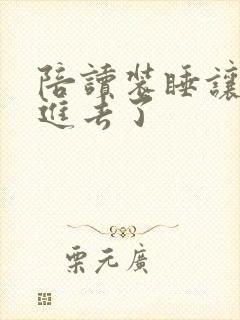 陪讀裝睡讓
進去了
栗元廣